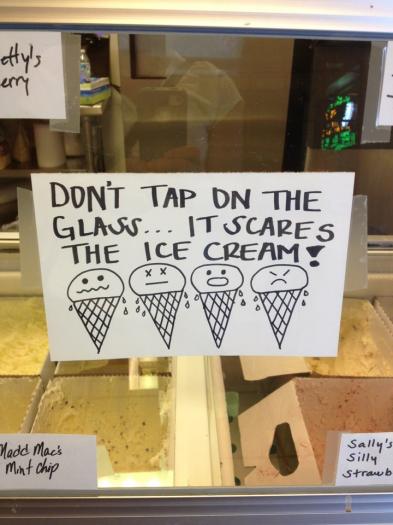 etty's
erry
DON'T TAP ON THE
GLASS... IT SCARES
THE ICE CREAM!
Madd Mac's
Mint Chip
Sally's
Silly
Strawb